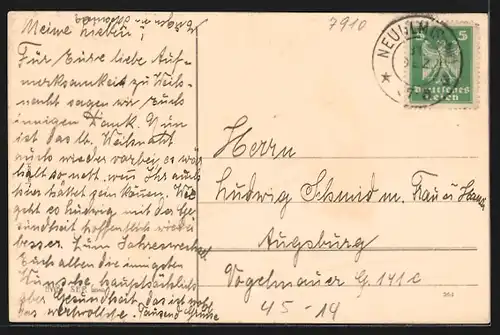 Meine Lieben!
Für Eure liebe Auf-
merksamkeit zu Weih-
nacht sagen wir Euch
innigen Dank. Nun
ist das lb. Weihnacht
auch wieder vorbei, es wär
halt so nett, wen Ihr auch
hier hättet sein können. Wie
geht es Ludwig mit der Ge-
sundheit hoffentlich wieder
besser. Zum Jahreswechsel
Euch allen die innigsten
Wünsche, hauptsächlich
aber Gesundheit, das ist wohl
das wertvollste. Tausend Grüße
7910
NEUULM
5 5
Deutsches
Reich
Herrn
Ludwig Schmid m. Frau u
Augsburg
Vogelmauer G. 141c
45-14